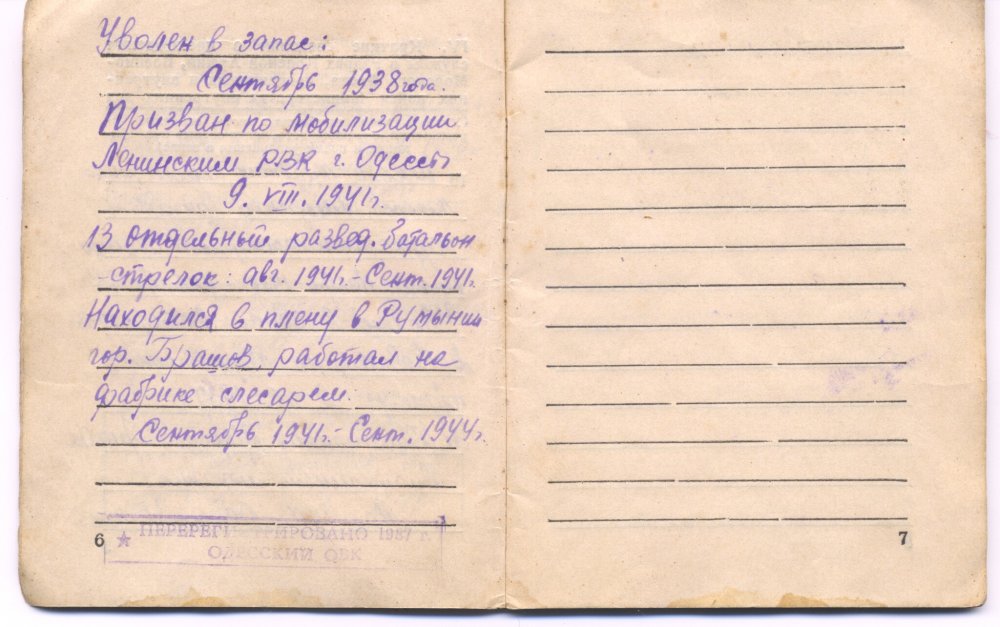 Уволен в запас:
Сентябрь 1938 года.
Призван по мобилизации
Ленинским РВК г. Одессы
9. VIII. 1941г.
13 отдельный развед. батальон
-стрелок: авг. 1941г.-Сент. 1941г.
Находился в плену в Румынии
гор. Брашов, работал на
фабрике слесарем.
Сентябрь 1941г.- Сент. 1944г.
ПЕРЕРЕГИСТРИРОВАНО 1987 г.
ОДЕССКИЙ ОВК
6
7